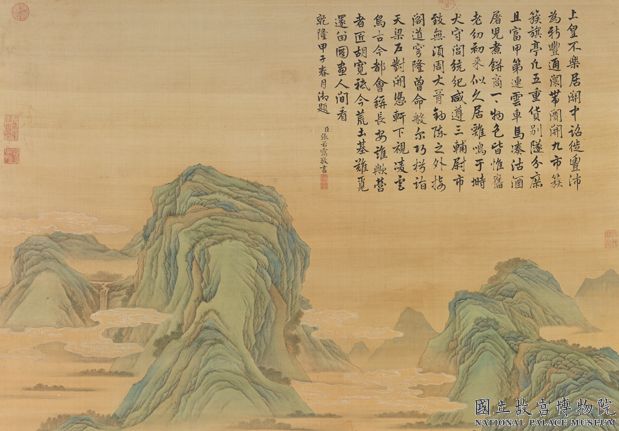 上皇不樂居關中詔徙豐沛
為新豐通闤帶闠開九市簇
簇旗亭凡五重貨別隧分廛
且富甲第連雲車馬湊沽酒
屠兒煮餅商一一物色皆惟舊
老幼初來似久居雞鳴于塒
犬守閭統紀咸遵三輔尉市
致無須周大胥鉤陳之外接
閣道穹隆曾命般尔巧枍詣
天梁戶對開憑軒下視凌雲
鳥古今都會稱長安誰歟營
者匠胡寬秪今荒土基難覓
還留圖畫人間看
乾隆甲子春月御題
臣張若靄敬書
國立故宮博物院
NATIONAL PALACE MUSEUM